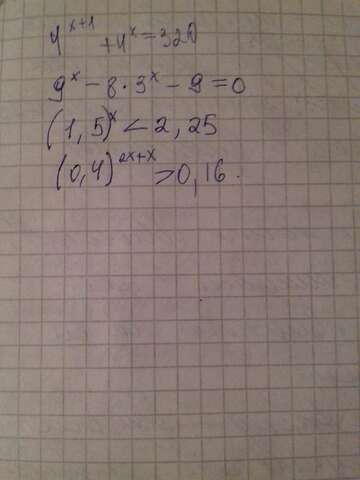 4^{x+1} + 4^x = 320
9^x - 8 · 3^x - 9 = 0
(1,5)^x < 2,25
(0,4)^{2x+x} > 0,16.